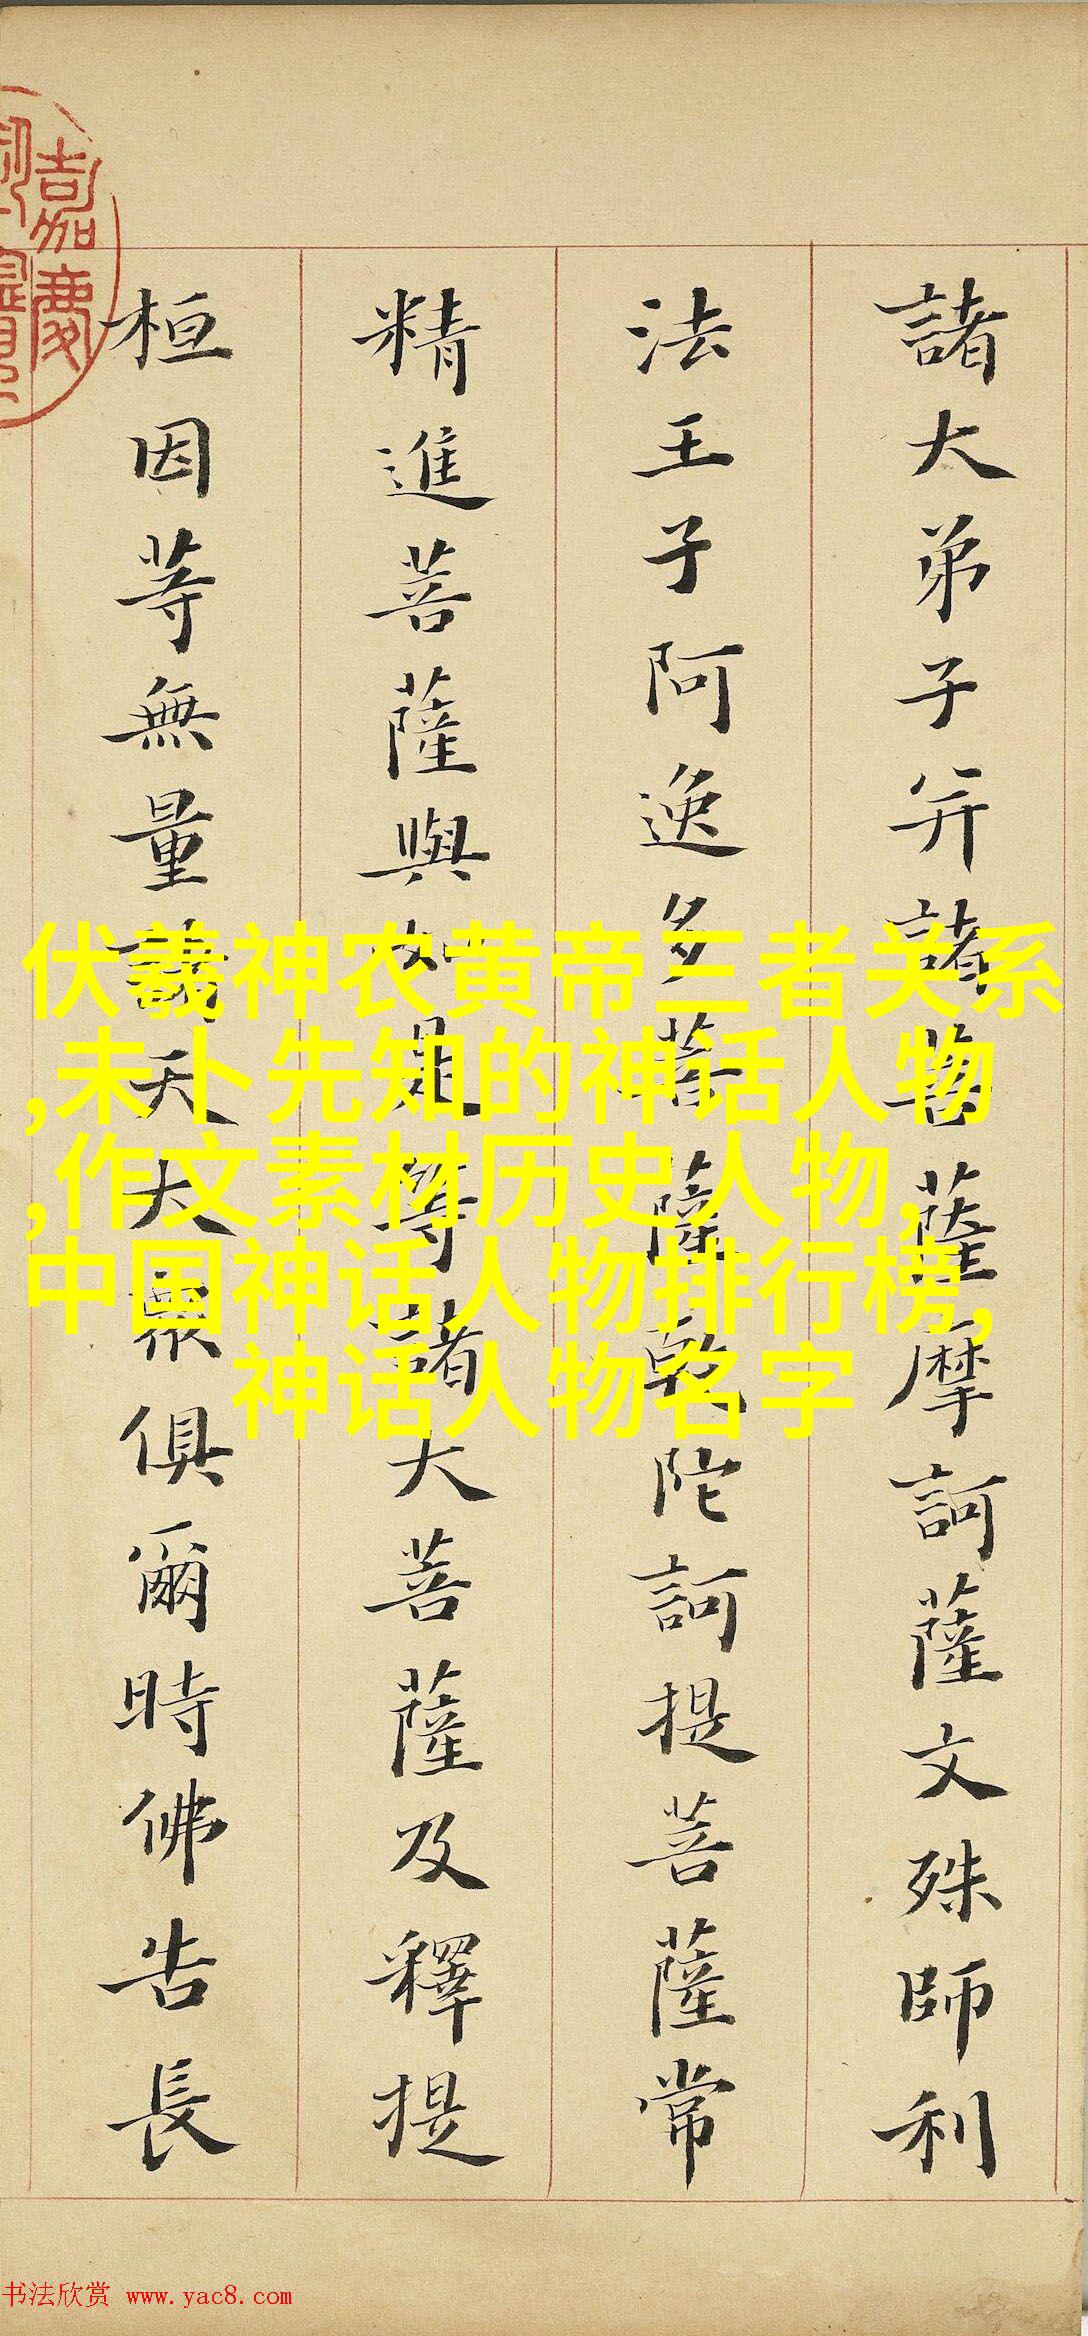 諸大弟子并諸菩薩摩訶薩文殊師利
法王子阿逸多菩薩乾陀訶提菩薩常
精進菩薩與如是等諸大菩薩及釋提
桓因等無量諸天大衆俱爾時佛告長
嘉慶
伏羲神农黄帝三者关系
,未卜先知的神话人物
,作文素材历史人物,
中国神话人物排行榜,
神话人物名字
书法欣赏 www.yac8.com